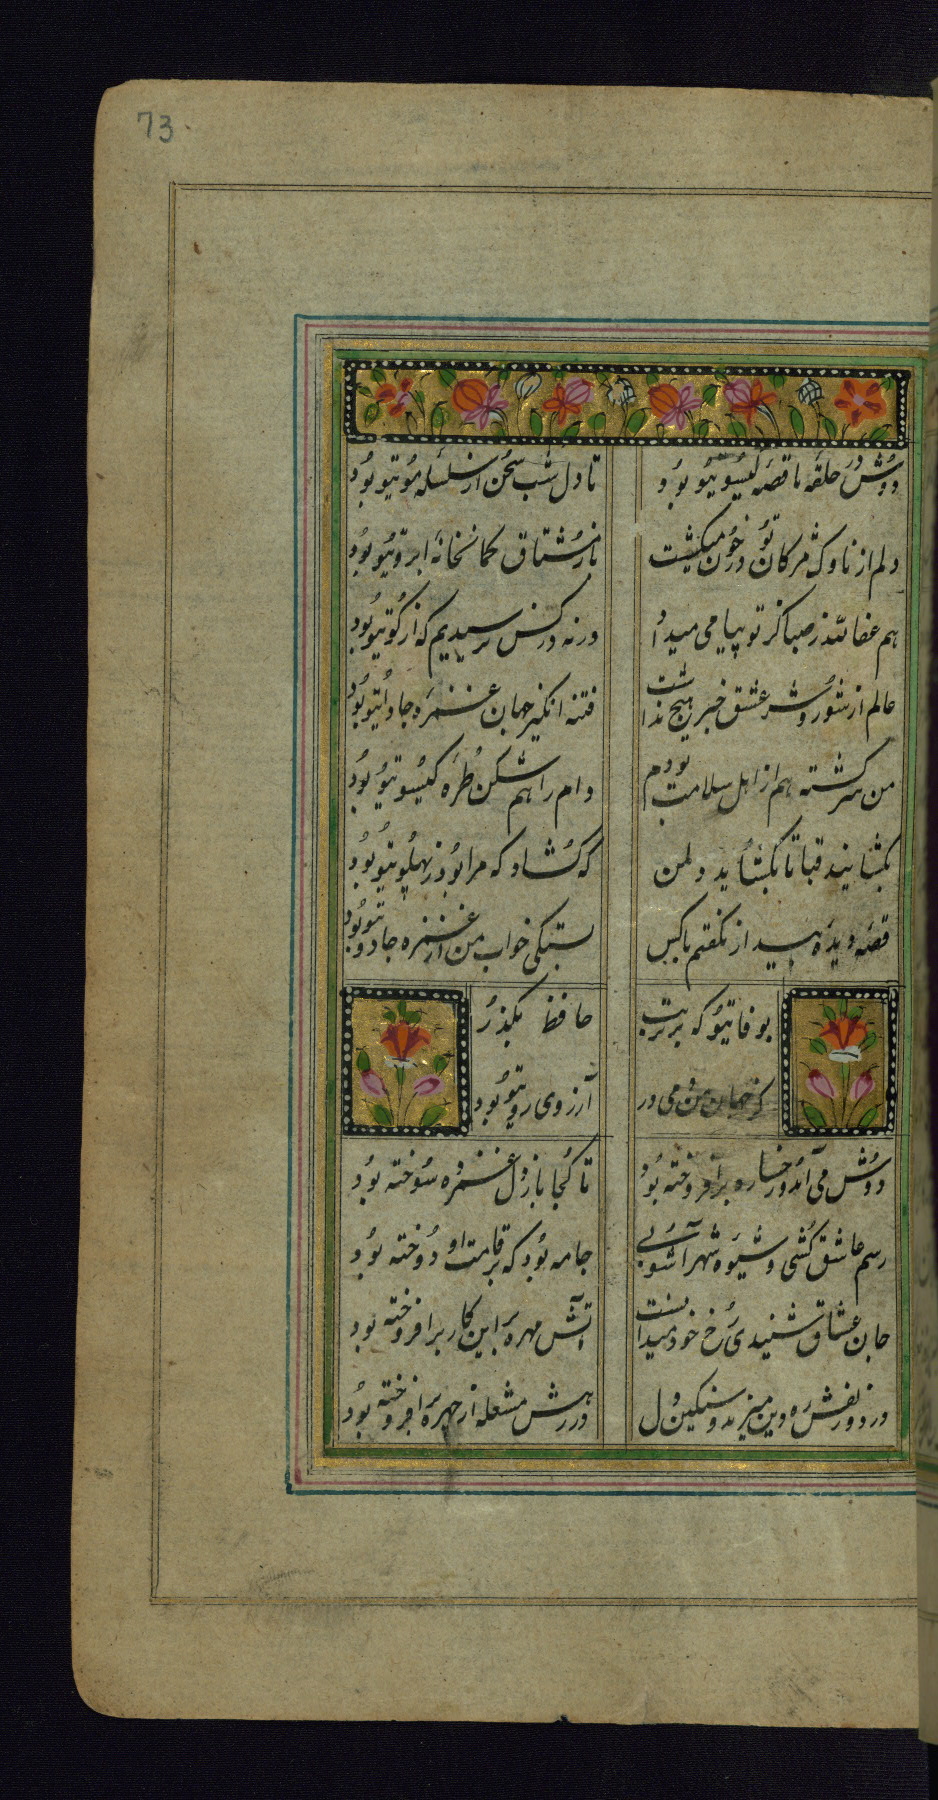 73
دوش در حلقه ما قصه گیسوی تو بود
تا دل شب سخن از سلسله موی تو بود
دلم از ناوک مژگان تو در خون میکشت
باز مشتاق کمانخانه ابروی تو بود
هم عفا الله ز صبا کز تو پیامی میداد
ورنه در کس نرسیدیم که از کوی تو بود
عالم از شور و شر عشق خبر هیچ نداشت
فتنه انگیز جهان غمزه جادوی تو بود
من سرگشته هم از اهل سلامت بودم
دام راهم شکن طره گیسوی تو بود
بگشا بند قبا تا بگشاید دل من
که گشادی که مرا بود ز پهلوی تو بود
قصه دیده
خواب من از غمزه جادوی تو بود
بوفای تو که بر تربت
حافظ بگذر
کز جهان می
آرزوی روی تو بود
دوش می آمد و رخساره برافروخته بود
تا کجا باز دل غمزده سوخته بود
رسم عاشق کشی و شیوه شهر آشوبی
جامه بود که بر قامت او دوخته بود
جان عشاق سپندی رخ خود میدانست
آتش مهره این کار برافروخته بود
زلفش ره دین میزد و سنگین دل
در رهش مشعله از چهره افروخته بود